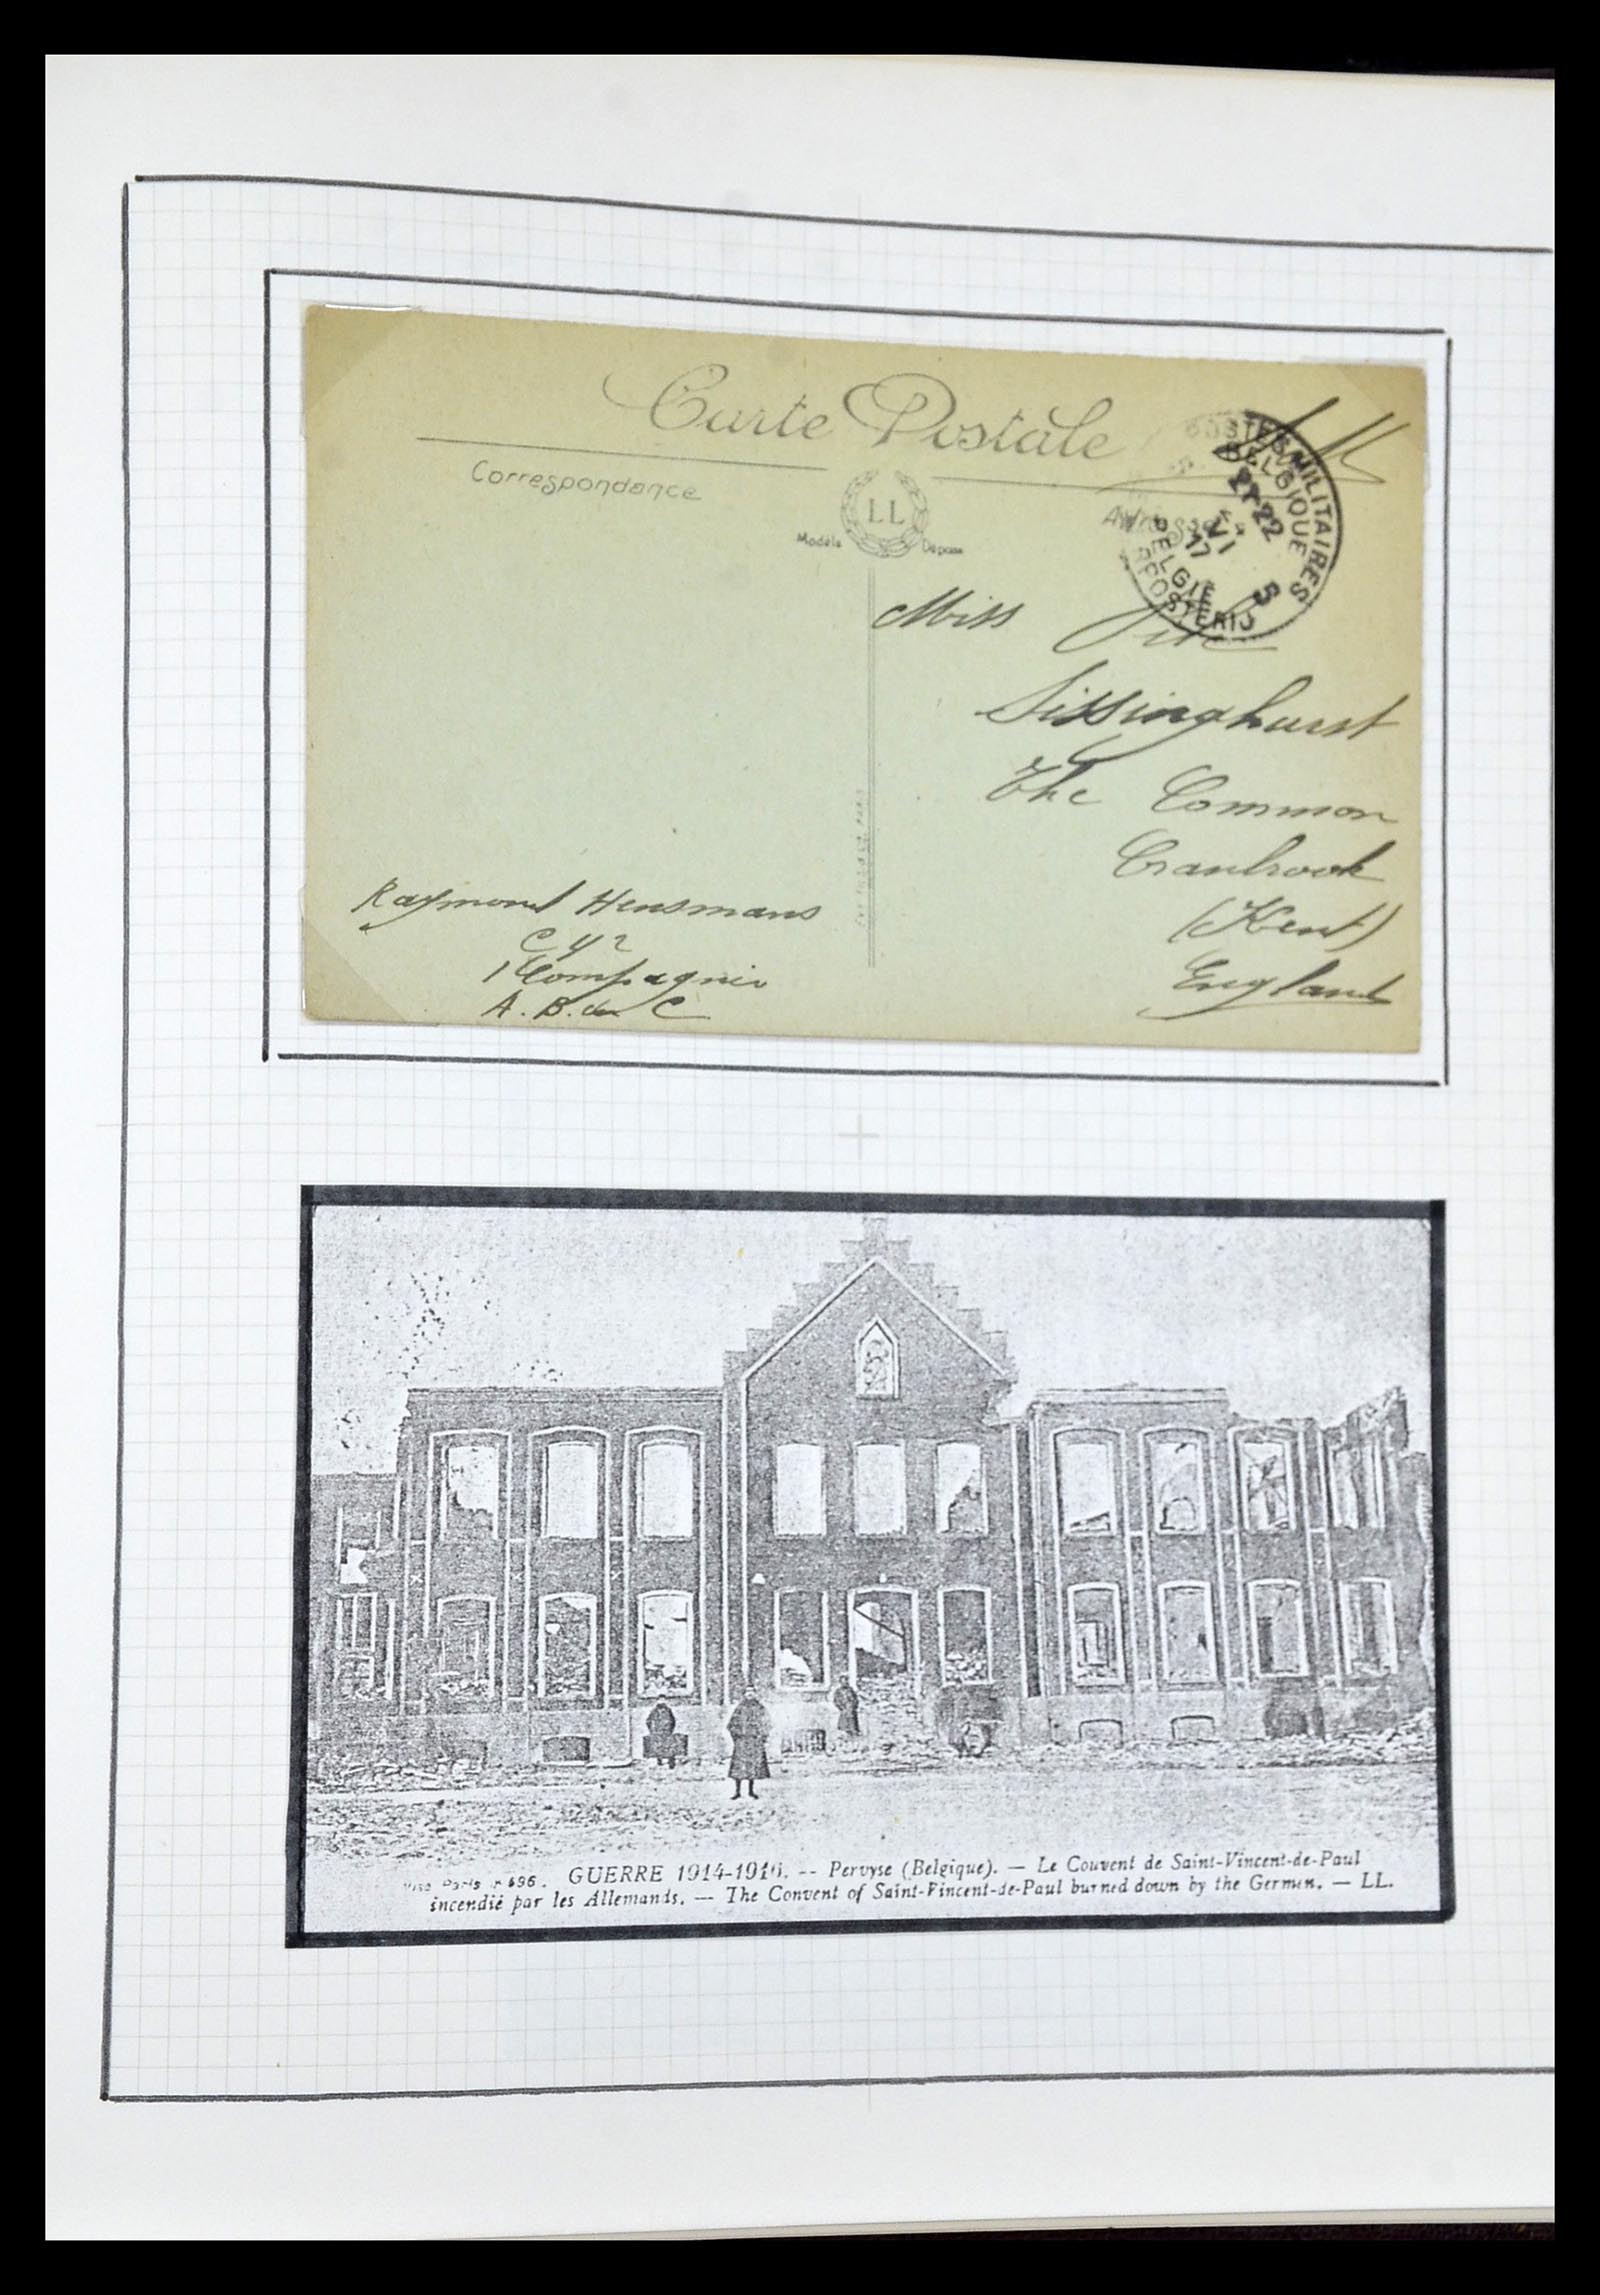 Carte Postale
Correspondance
LL
Modèle Déposé
POSTES MILITAIRES
BELGIQUE
22
VI
17
5
BELGIË
POSTERIJ
Miss
Sissinghurst
The Common
Cranbrook
(Kent)
England
Raymond Hensmans
1 Compagnie
A. B. de C
Visa Paris n° 696. GUERRE 1914-1916. -- Pervyse (Belgique). — Le Couvent de Saint-Vincent-de-Paul
incendié par les Allemands. — The Convent of Saint-Vincent-de-Paul burned down by the Germen. — LL.